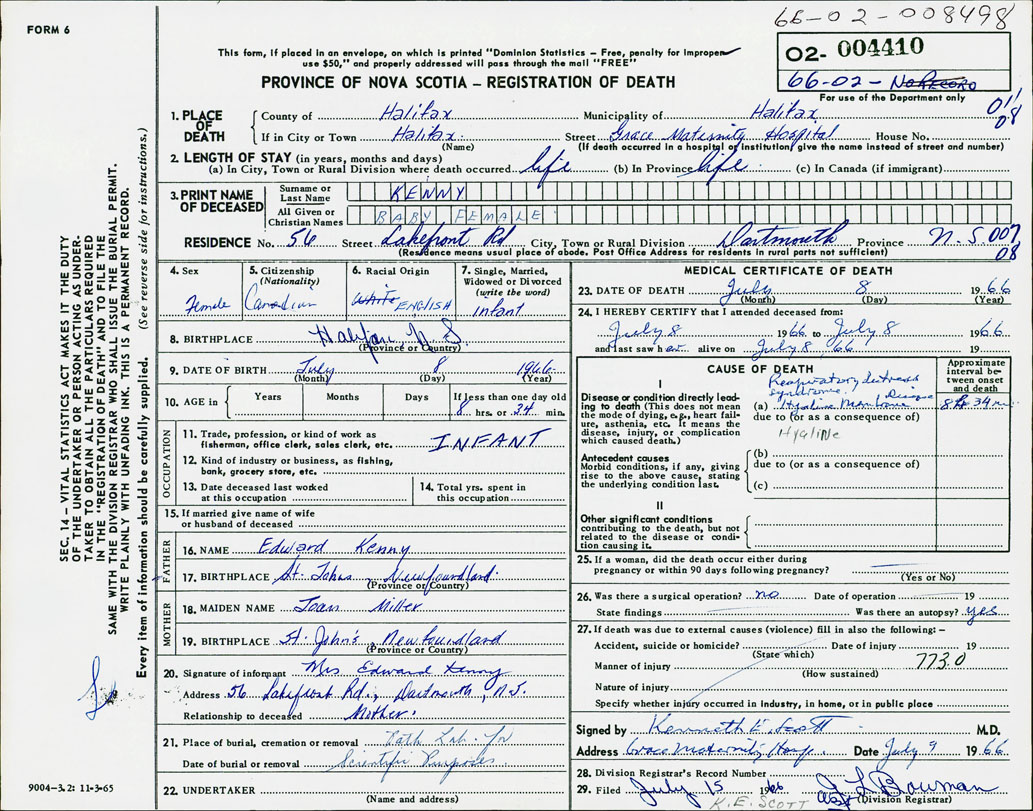 FORM 6
66-02-008498
This form, if placed in an envelope, on which is printed "Dominion Statistics – Free, penalty for Improper
use $50," and properly addressed will pass through the mail "FREE"
02- 004410
66-02- NO RECORD
PROVINCE OF NOVA SCOTIA – REGISTRATION OF DEATH
For use of the Department only
1. PLACE OF DEATH County of Halifax Municipality of Halifax 011
08
If in City or Town Halifax. Street Grace Maternity Hospital House No.
(Name) (If death occurred in a hospital or institution, give the name instead of street and number)
2. LENGTH OF STAY (in years, months and days)
(a) In City, Town or Rural Division where death occurred life (b) In Province life (c) In Canada (if immigrant)
3. PRINT NAME OF DECEASED Surname or Last Name KENNY
All Given or Christian Names BABY FEMALE
RESIDENCE No. 56 Street Lakefront Rd City, Town or Rural Division Dartmouth Province N.S. 007
(Residence means usual place of abode. Post Office Address for residents in rural parts not sufficient) 08
4. Sex Female
5. Citizenship (Nationality) Canadian
6. Racial Origin White ENGLISH
7. Single, Married, Widowed or Divorced (write the word) infant
8. BIRTHPLACE Halifax N.S.
(Province or Country)
9. DATE OF BIRTH July 8 1966
(Month) (Day) (Year)
10. AGE in Years Months Days If less than one day old
8 hrs. or 34 min.
OCCUPATION
11. Trade, profession, or kind of work as
fisherman, office clerk, sales clerk, etc. INFANT
12. Kind of industry or business, as fishing,
bank, grocery store, etc.
13. Date deceased last worked
at this occupation
14. Total yrs. spent in
this occupation
15. If married give name of wife
or husband of deceased
FATHER
16. NAME Edward Kenny
17. BIRTHPLACE St. Johns Newfoundland.
(Province or Country)
MOTHER
18. MAIDEN NAME Joan Miller
19. BIRTHPLACE St. John's, Newfoundland
(Province or Country)
20. Signature of informant Mrs Edward Kenny
Address 56 Lakefront Rd., Dartmouth, N.S.
Relationship to deceased Mother.
21. Place of burial, cremation or removal Path Lab. for
Date of burial or removal Scientific Purposes
22. UNDERTAKER
(Name and address)
MEDICAL CERTIFICATE OF DEATH
23. DATE OF DEATH July 8 1966
(Month) (Day) (Year)
24. I HEREBY CERTIFY that I attended deceased from:
July 8 1966 to July 8 1966
and last saw her alive on July 8, 66 19
CAUSE OF DEATH
Approximate interval between onset and death
I
Disease or condition directly leading to death (This does not
mean the mode of dying, e.g., heart failure,
asthenia, etc. It means the
disease, injury, or complication
which caused death.)
Respiratory distress
syndrome
(a) Hyaline Membrane Disease 8 hr 34 m
due to (or as a consequence of)
Hyaline
Antecedent causes
Morbid conditions, if any, giving
rise to the above cause, stating
the underlying condition last.
(b)
due to (or as a consequence of)
(c)
II
Other significant conditions
contributing to the death, but not
related to the disease or condition
causing it.
25. If a woman, did the death occur either during
pregnancy or within 90 days following pregnancy?
(Yes or No)
26. Was there a surgical operation? no Date of operation 19
State findings Was there an autopsy? yes
27. If death was due to external causes (violence) fill in also the following: –
Accident, suicide or homicide? Date of injury 19
(State which)
Manner of injury 773.0
(How sustained)
Nature of injury
Specify whether injury occurred in industry, in home, or in public place
Signed by Kenneth E. Scott M.D.
Address Grace Maternity Hosp. Date July 9 1966
28. Division Registrar's Record Number
29. Filed July 15 1966 J L Bowman
K. E. SCOTT (Division Registrar)
SEC. 14 – VITAL STATISTICS ACT MAKES IT THE DUTY
OF THE UNDERTAKER OR PERSON ACTING AS UNDER-
TAKER TO OBTAIN ALL THE PARTICULARS REQUIRED
IN THE "REGISTRATION OF DEATH" AND TO FILE THE
SAME WITH THE DIVISION REGISTRAR WHO SHALL ISSUE THE BURIAL PERMIT.
WRITE PLAINLY WITH UNFADING INK. THIS IS A PERMANENT RECORD.
Every item of information should be carefully supplied. (See reverse side for instructions.)
9004-3.2: 11-3-65